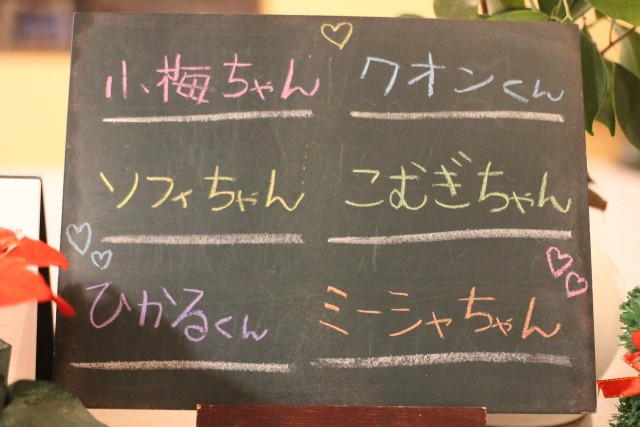 小梅ちゃん
クオンくん
ソフィちゃん
こむぎちゃん
ひかるくん
ミーシャちゃん